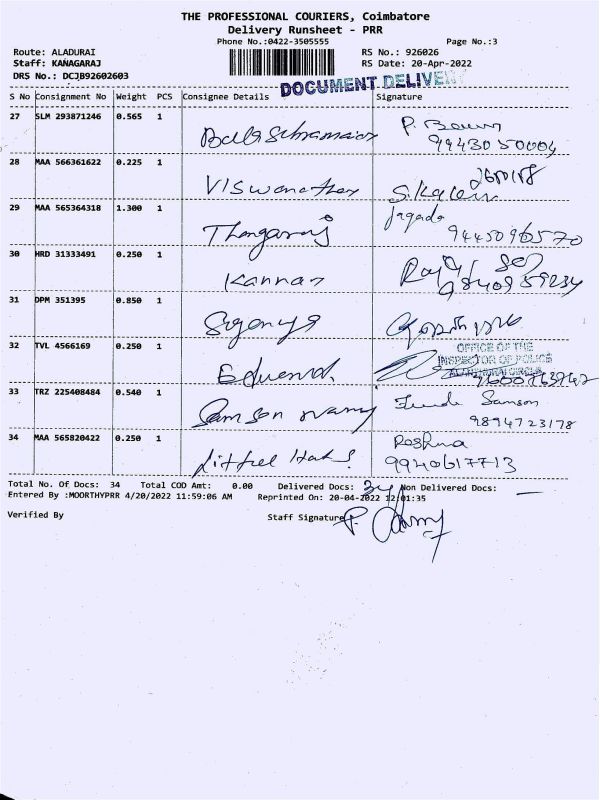 THE PROFESSIONAL COURIERS, Coimbatore
Delivery Runsheet - PRR
Phone No.:0422-3505555 Page No.:3
Route: ALADURAI RS No.: 926026
Staff: KANAGARAJ RS Date: 20-Apr-2022
DRS No.: DCJB92602603
DOCUMENT DELIVERY
S No Consignment No Weight PCS Consignee Details Signature
27 SLM 293871246 0.565 1
28 MAA 566361622 0.225 1 Viswanathan
29 MAA 565364318 1.300 1 Thangaraj Jagada
30 HRD 31333491 0.250 1 Kannan
31 DPM 351395 0.850 1
32 TVL 4566169 0.250 1 Edward.
OFFICE OF THE
INSPECTOR OF POLICE
33 TRZ 225408484 0.540 1 Samson Samson
9894723178
34 MAA 565820422 0.250 1 Roshna
9940617713
Total No. Of Docs: 34 Total COD Amt: 0.00 Delivered Docs: 34 Non Delivered Docs: —
Entered By :MOORTHYPRR 4/20/2022 11:59:06 AM Reprinted On: 20-04-2022 12:01:35
Verified By Staff Signature